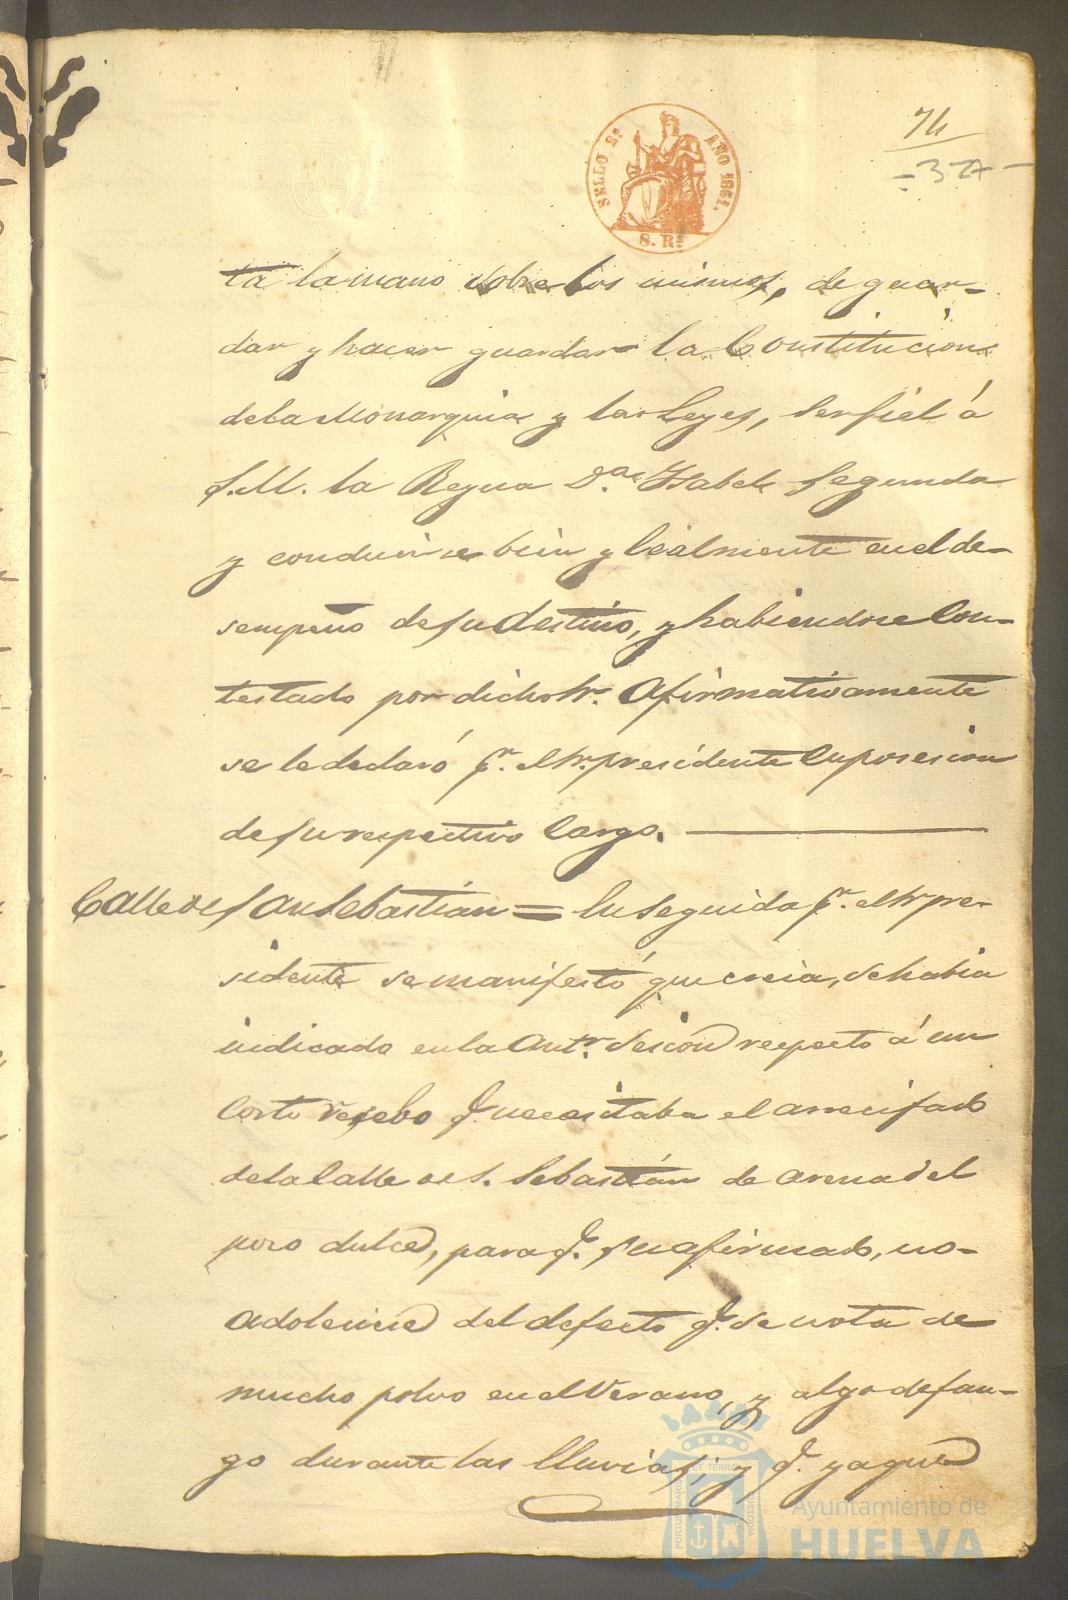 74
- 37 -
SELLO 2º AÑO 1861.
8. Rs
ta la mano sobre los mismos, de guar-
dar y hacer guardar la Constitucion
de la Monarquia y las Leyes, ser fiel á
S.M. la Reyna D.ª Ysabel Segunda
y conducirse bien y lealmente en el de-
sempeño de su destino, y habiendose con-
testado por dicho Sr. afirmativamente
se le declaró pr. el Sr. presidente en posesion
de su respectivo cargo.
Calle de San Sebastián = En seguida pr. el Sr. pre-
sidente se manifestó que creia, se habia
indicado en la antr. sesion respecto á un
corto resebo q. necesitaba el arrecifado
de la Calle de S. Sebastián de arena del
pozo dulce, para q. su afirmado, no
adoleciese del defecto q. se nota de
mucho polvo en el Verano, y algo de fan-
go durante las lluvias; y q. ya que
PORTUS MARIS ET TERRÆ CUSTODIA
Ayuntamiento de
HUELVA